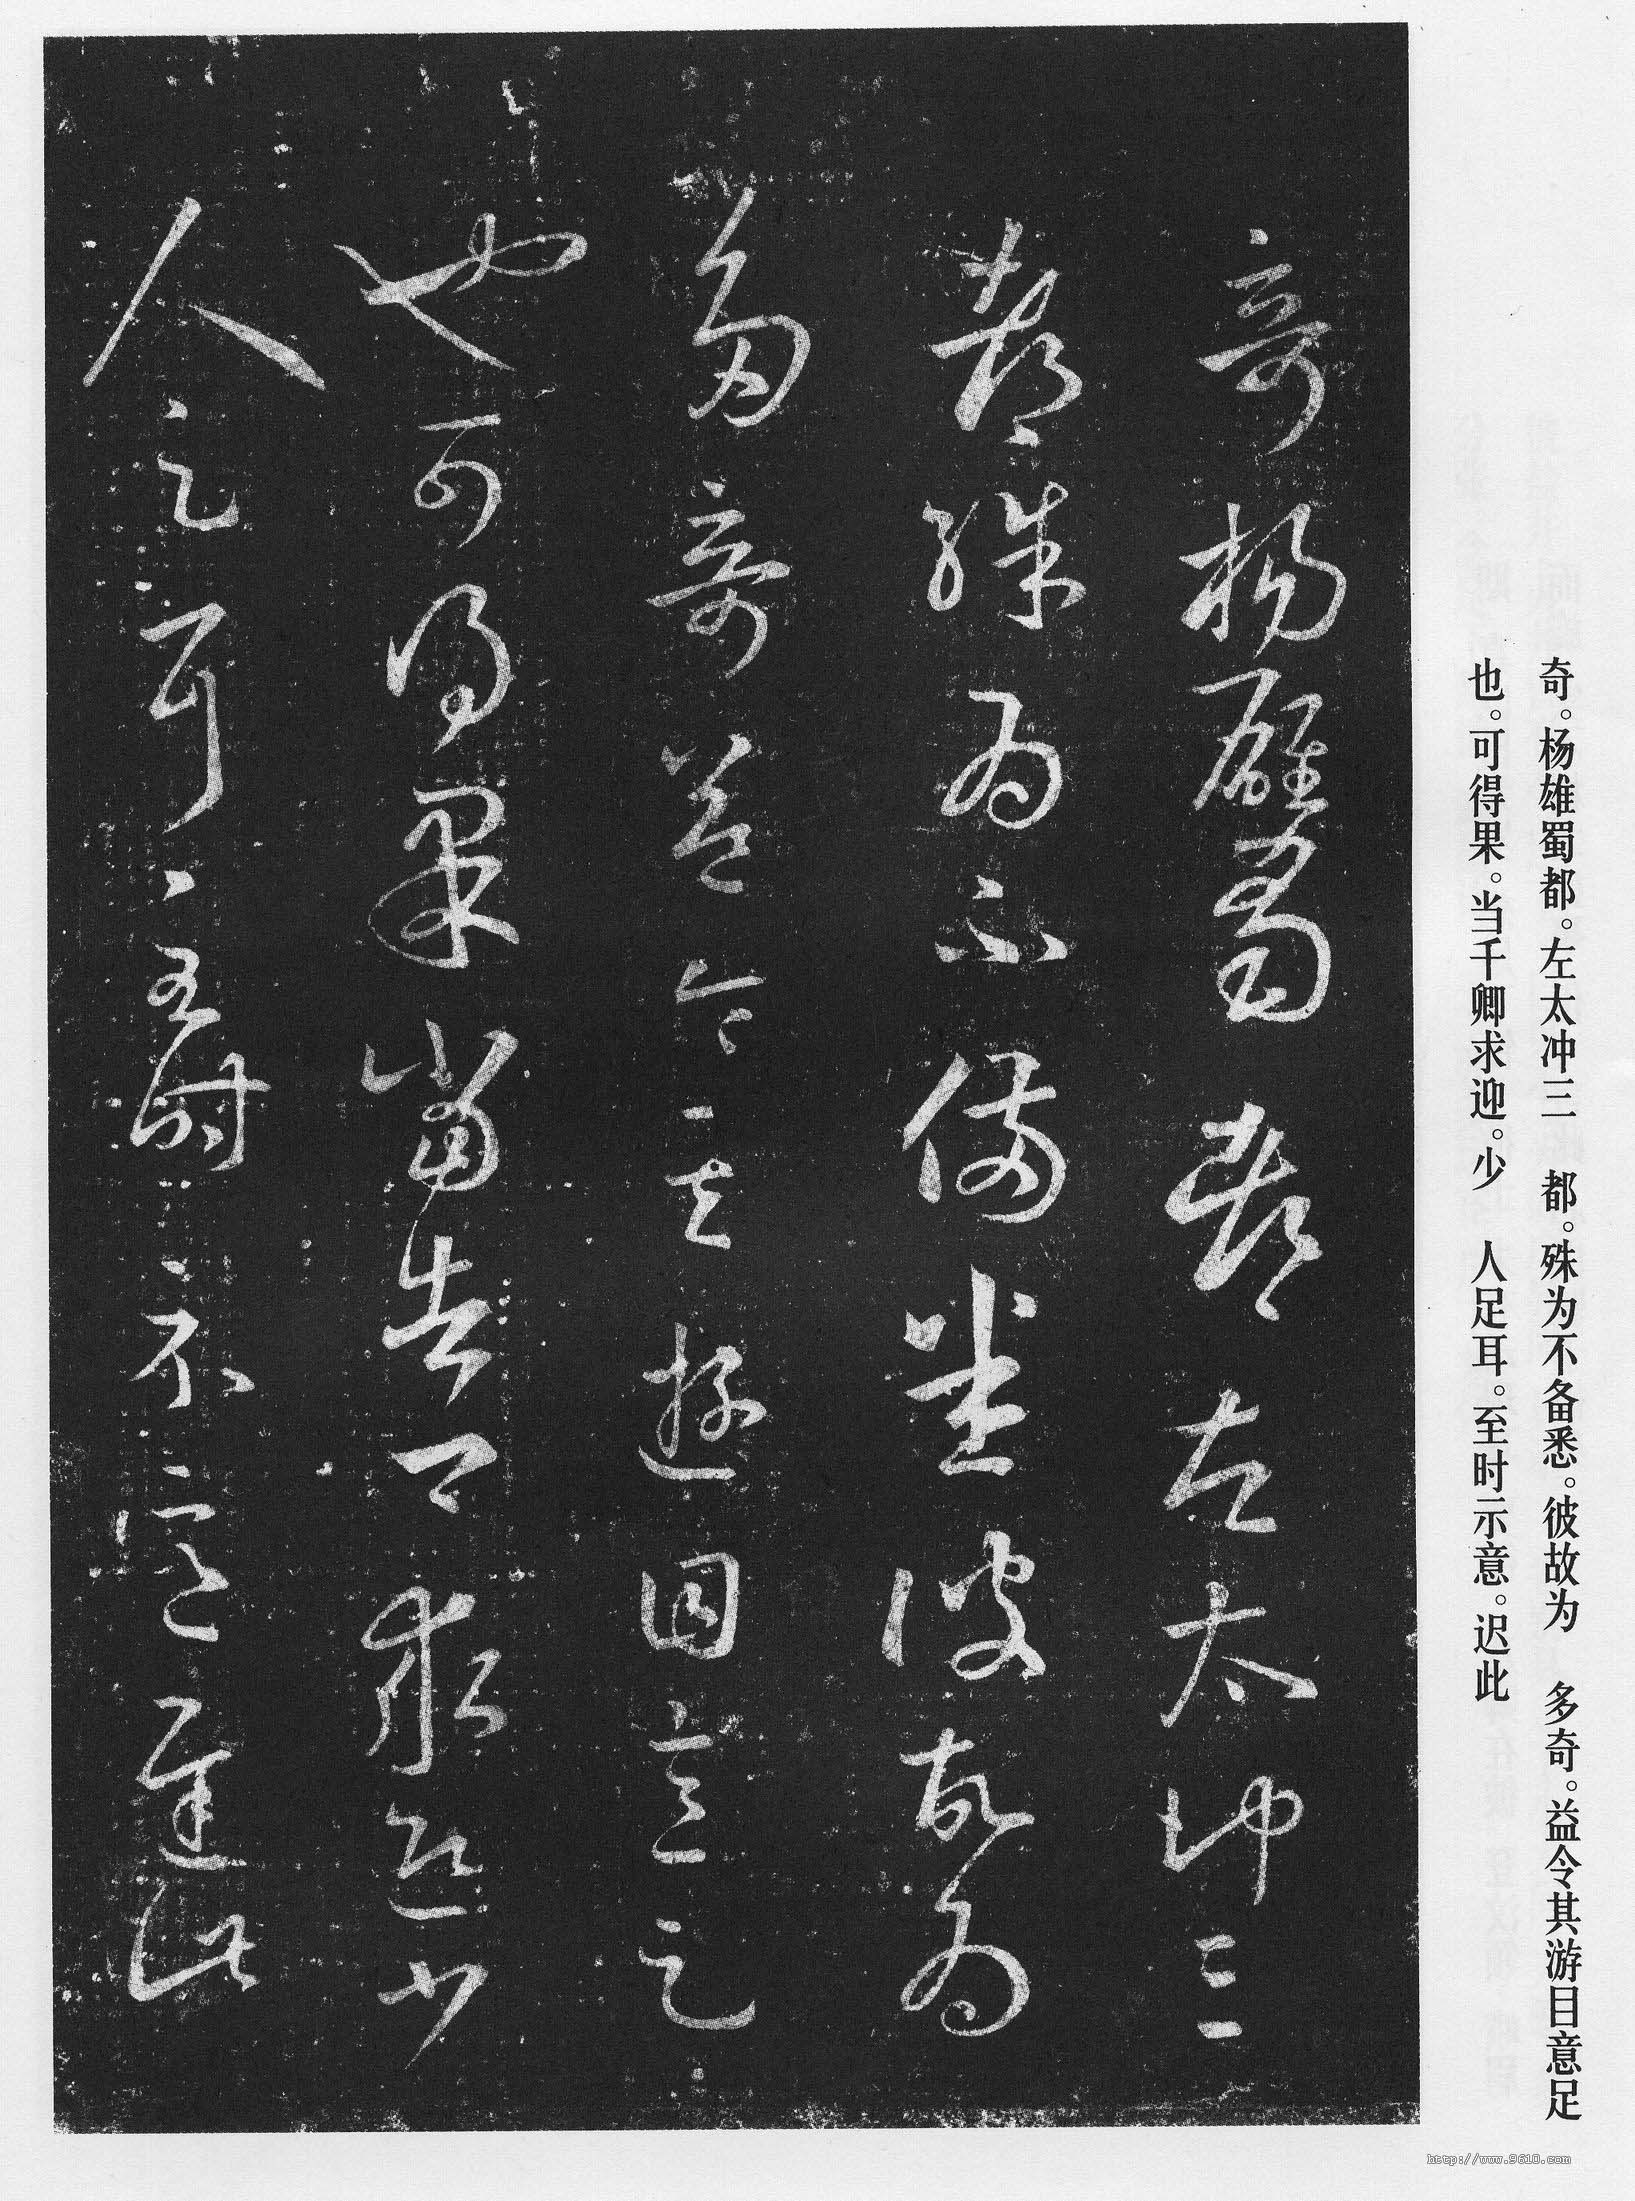 奇。杨雄蜀都。左太冲三　都。殊为不备悉。彼故为　多奇。益令其游目意足
也。可得果。当千卿求迎。少　人足耳。至时示意。迟此
奇楊雄蜀都左太冲三
都殊為不備悉彼故為
多奇益令其遊目意足
也可得果當告卿求迎少
人足耳至時示意遲此
http://www.9610.com